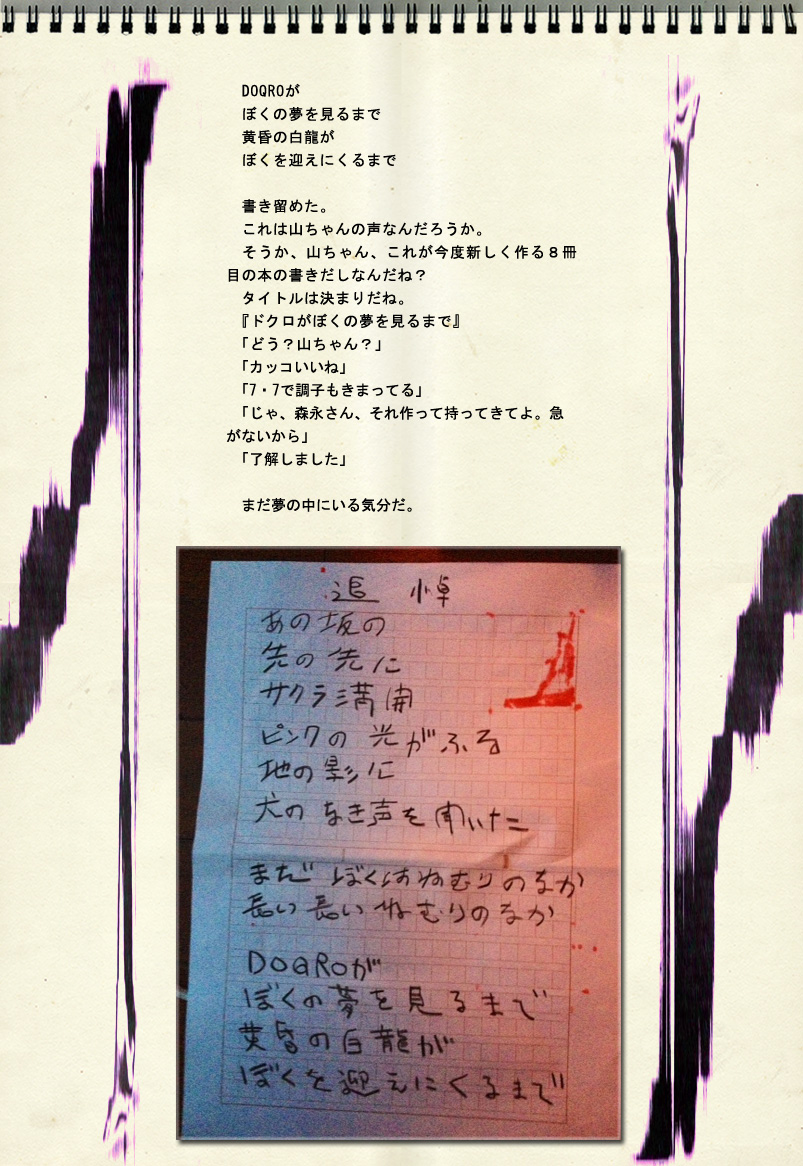 DOQROが
ぼくの夢を見るまで
黄昏の白龍が
ぼくを迎えにくるまで
書き留めた。
これは山ちゃんの声なんだろうか。
そうか、山ちゃん、これが今度新しく作る８冊
目の本の書きだしなんだね？
タイトルは決まりだね。
『ドクロがぼくの夢を見るまで』
「どう？山ちゃん？」
「カッコいいね」
「7・7で調子もきまってる」
「じゃ、森永さん、それ作って持ってきてよ。急
がないから」
「了解しました」
まだ夢の中にいる気分だ。
追悼
あの坂の
先の先に
サクラ満開
ピンクの光がふる
地の影に
犬のなき声を聞いた
まだぼくはねむりのなか
長い長いねむりのなか
DOQROが
ぼくの夢を見るまで
黄昏の白龍が
ぼくを迎えにくるまで